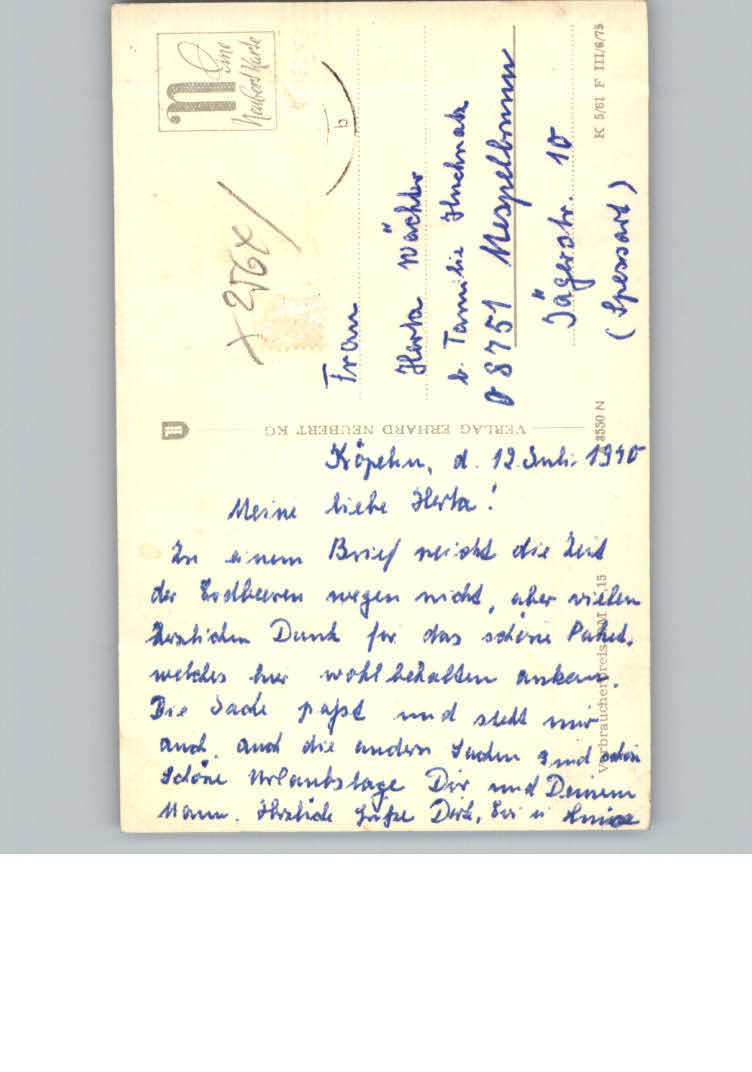 Meine
Neubert Karte
b
K 5/61 F III/6/75
+ 256x/
Frau
Herta Wächter
b. Familie
D 8751 Mespelbrunn
Jägerstr. 10
(Spessart)
VERLAG ERHARD NEUBERT KG
3550 N
Verbraucherpreis M 0,15
d. 12. Juli 1970
Meine liebe Herta!
Zu einem Brief reicht die Zeit
der Erdbeeren wegen nicht, aber vielen
herzlichen Dank für das schöne Paket,
welches hier wohlbehalten ankam.
Die Jacke paßt und steht mir
auch, auch die andern Sachen sind schön
Schöne Urlaubstage Dir und Deinem
Mann. Herzliche Grüße Dich, u